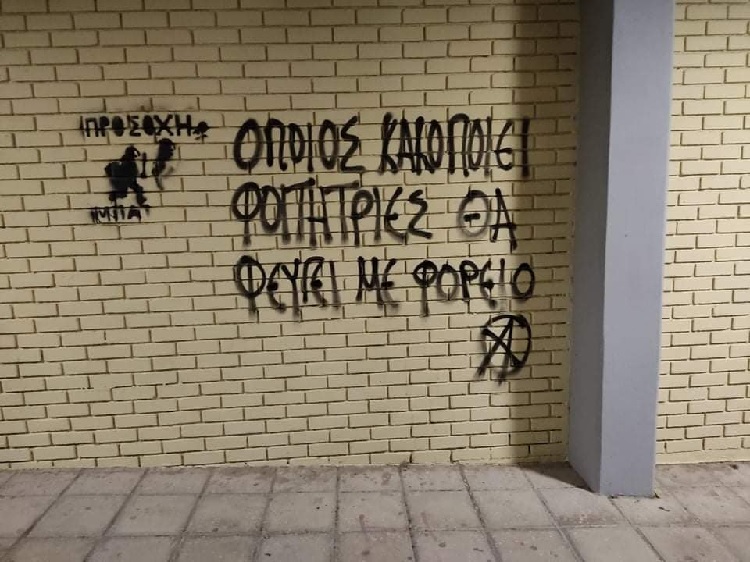 ΠΡΟΣΟΧΗ
ΜΠΑ
ΟΠΟΙΟΣ ΚΑΚΟΠΟΙΕΙ
ΦΟΙΤΗΤΡΙΕΣ ΘΑ
ΦΕΥΓΕΙ ΜΕ ΦΟΡΕΙΟ